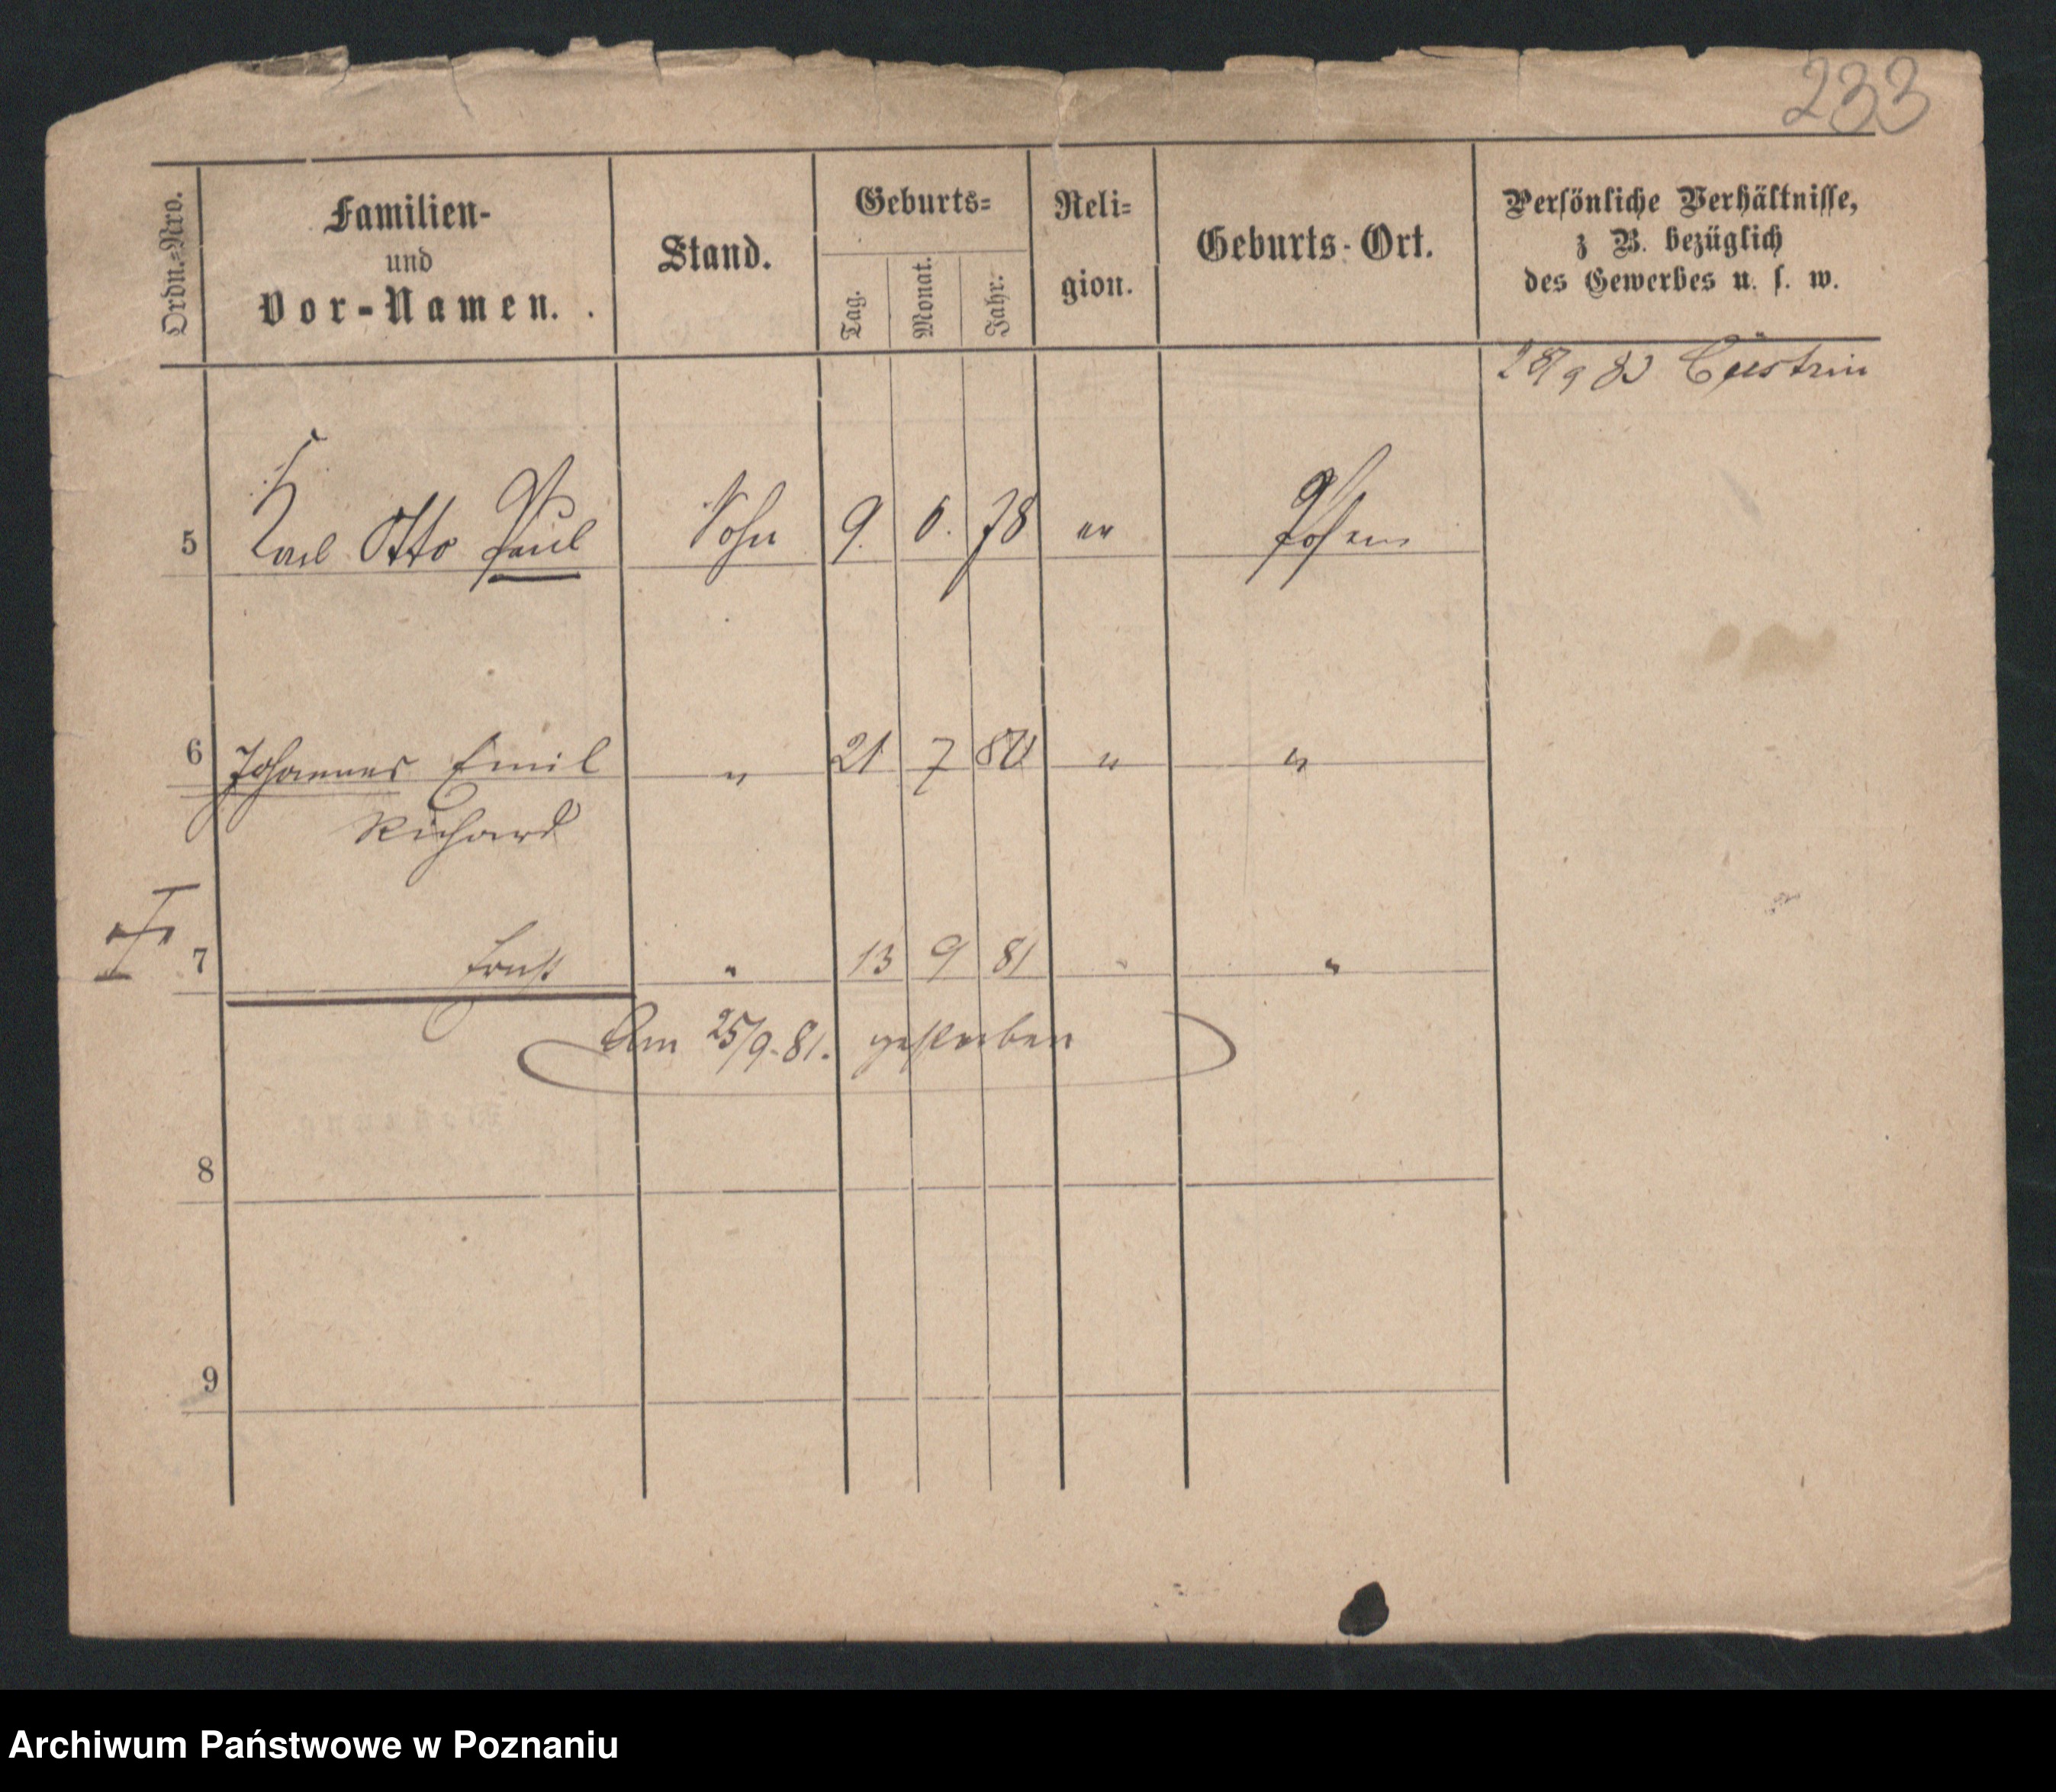 233
Ordn.=Nro.
Familien-
und
Vor-Namen.
Stand.
Geburts=
Tag.
Monat.
Jahr.
Reli=
gion.
Geburts-Ort.
Persönliche Verhältnisse,
z B. bezüglich
des Gewerbes u. s. w.
28/9 83 Cüstrin
5 Karl Otto Paul Sohn 9. 6. 78 ev Posen
6 Johannes Emil " 21 7 80 " "
Richard
7 Ernst " 13 9 81 " "
Am 25/9.81. gestorben
8
9
Archiwum Państwowe w Poznaniu